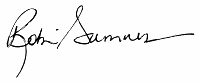 Robin Sumner